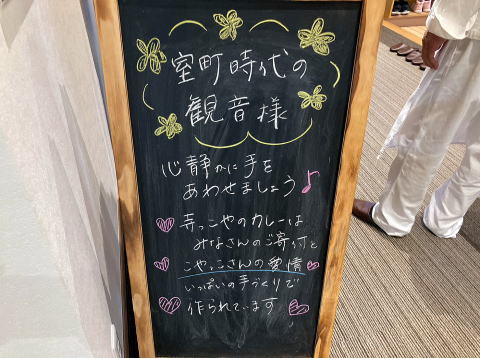 室町時代の
観音様
心静かに手を
あわせましょう♪
寺っこやのカレーは
みなさんのご寄付と
こやっこさんの愛情
いっぱいの手づくりで
作られています